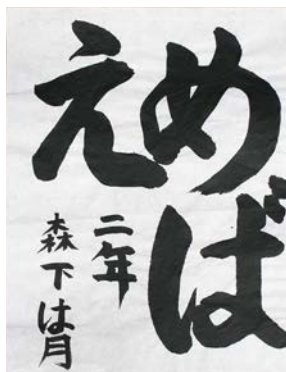 めば
え
二年
森下は月